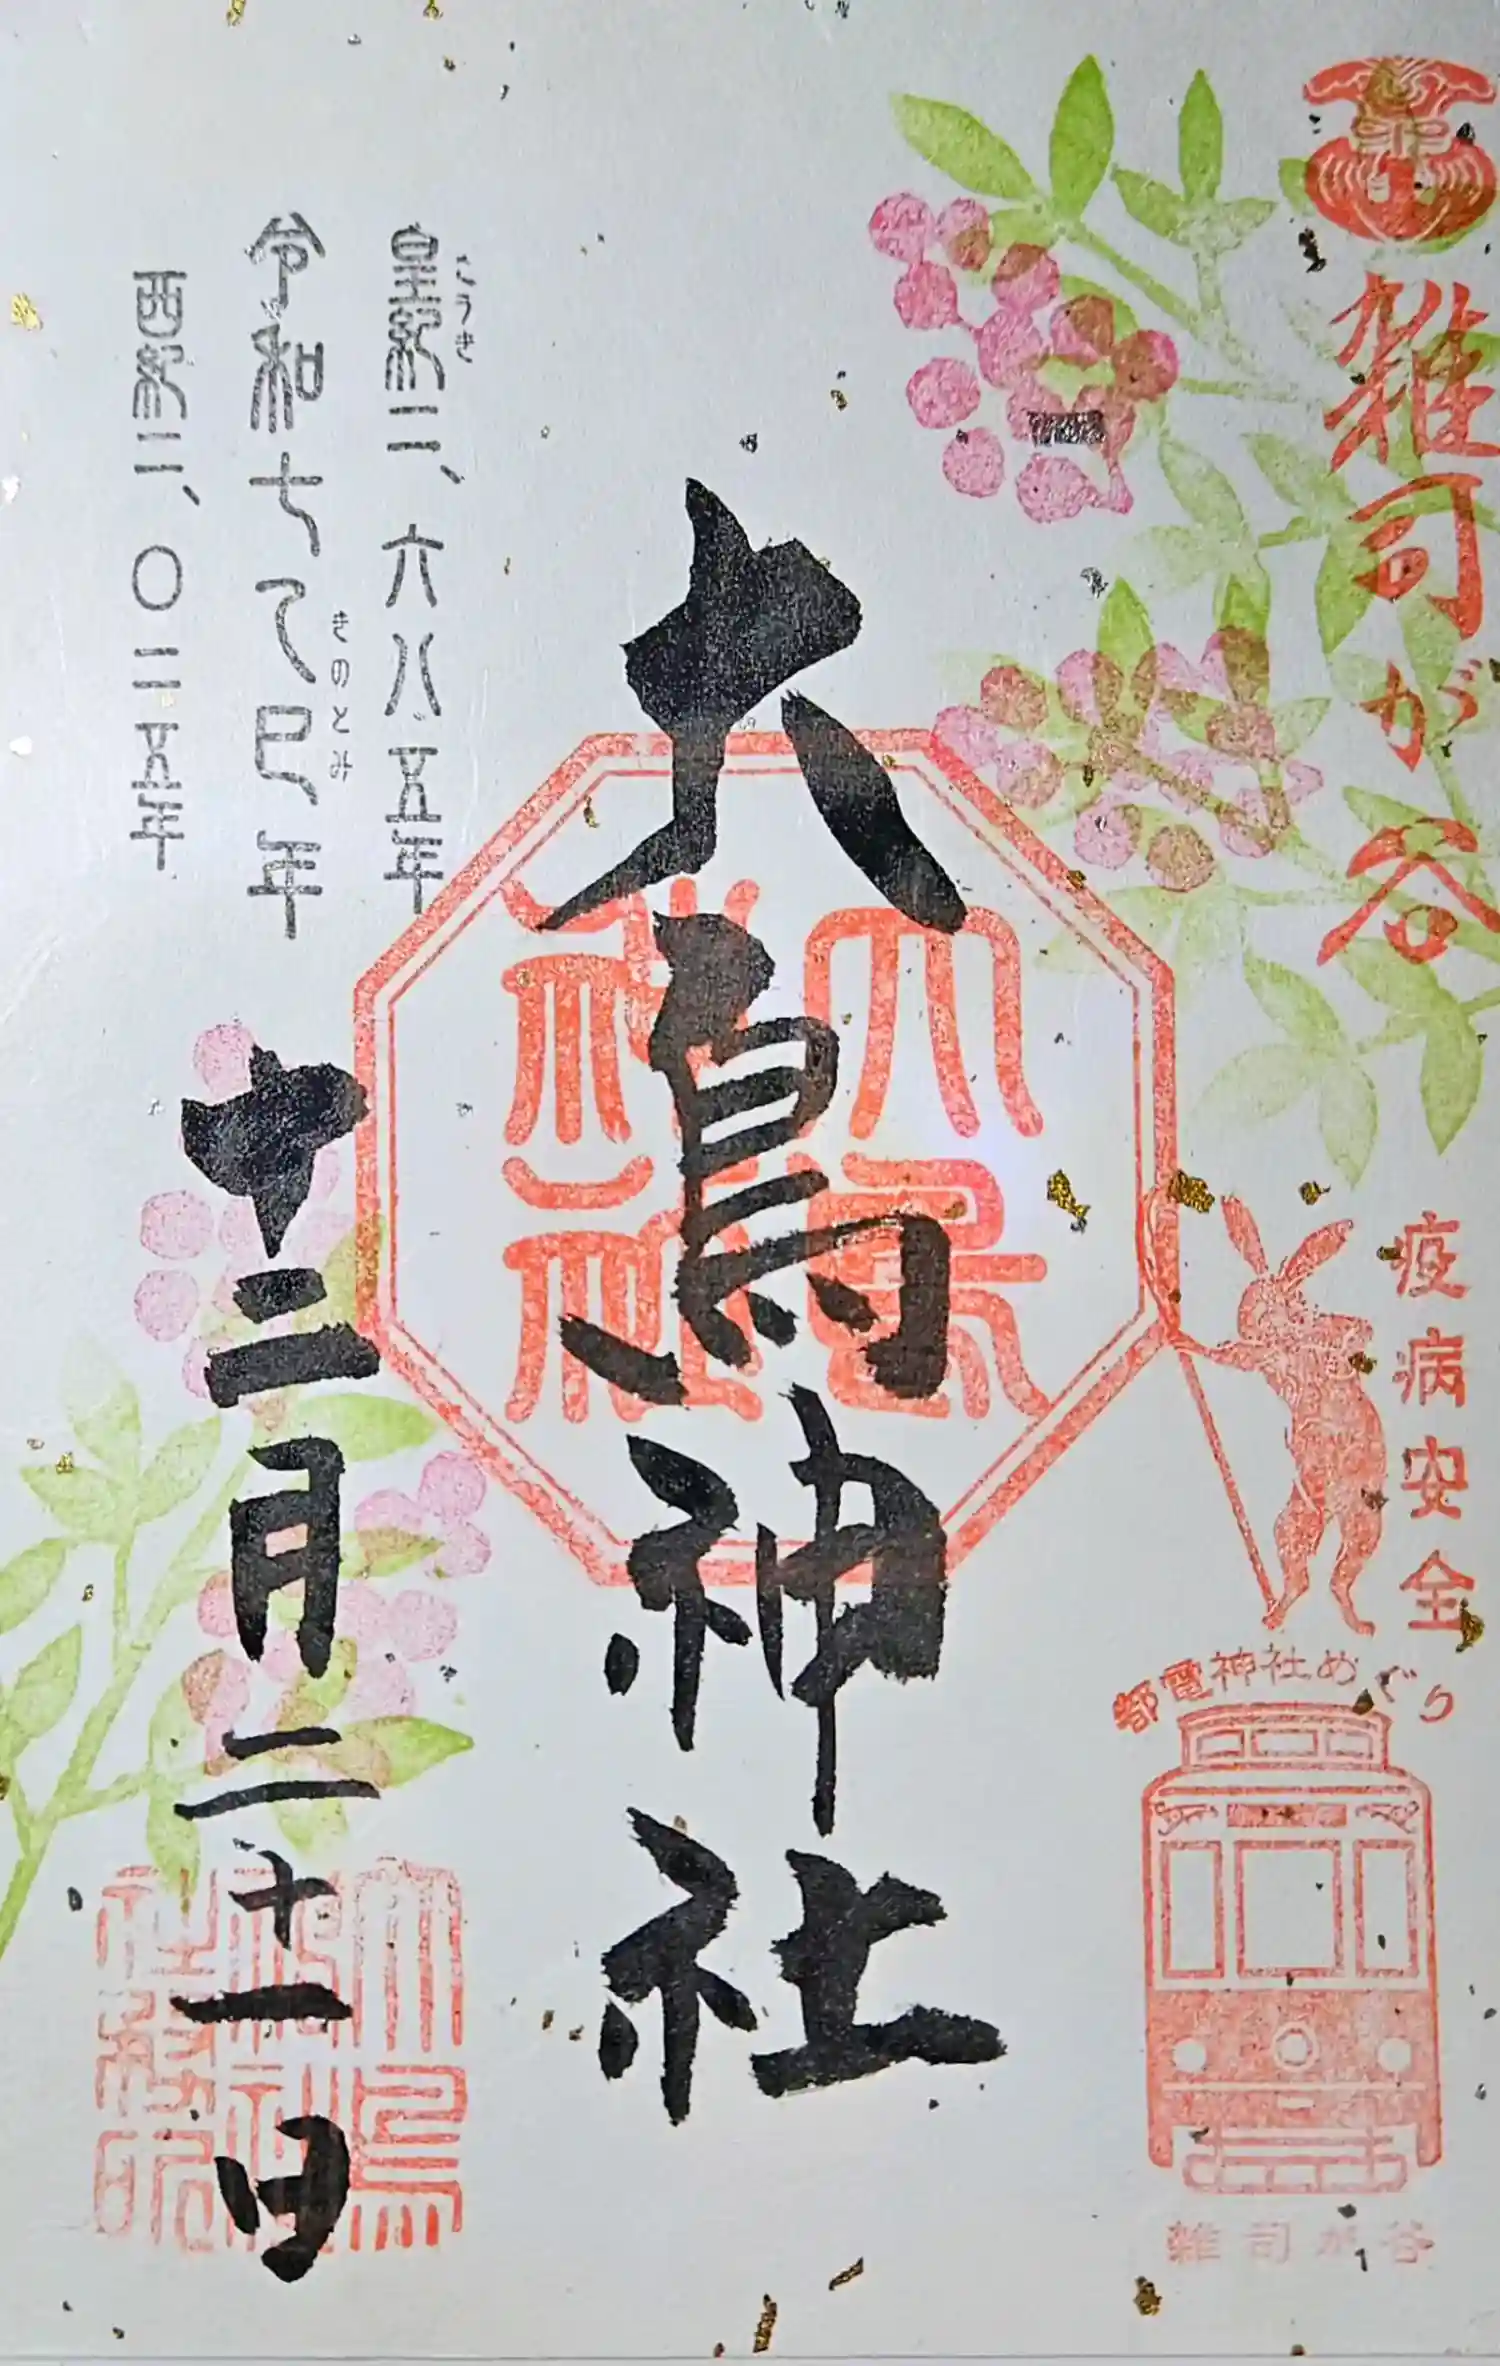 雑司が谷
疫病安全
都電神社めぐり
雑司が谷
大鳥神社
大鳥神社
こうき
皇紀二、六八五年
きのとみ
令和七乙巳年
西紀二、〇二五年
十二月二十一日
大鳥神社社務所